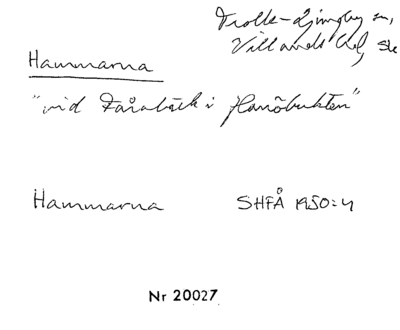 Trolle-Ljungby sn,
Villands hd, Sk
Hammarna
"vid Tårabäck i Hanöbukten"
Hammarna SHFÅ 1950:4
Nr 20027